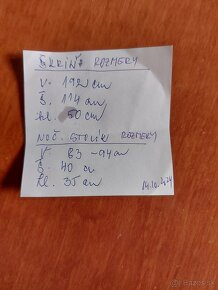 SKRIŇA ROZMERY
V. 192 cm
Š. 114 cm
hl. 50 cm
NOČ. STOLÍK ROZMERY
V 83-94 cm
Š. 40 cm
hl. 35 cm